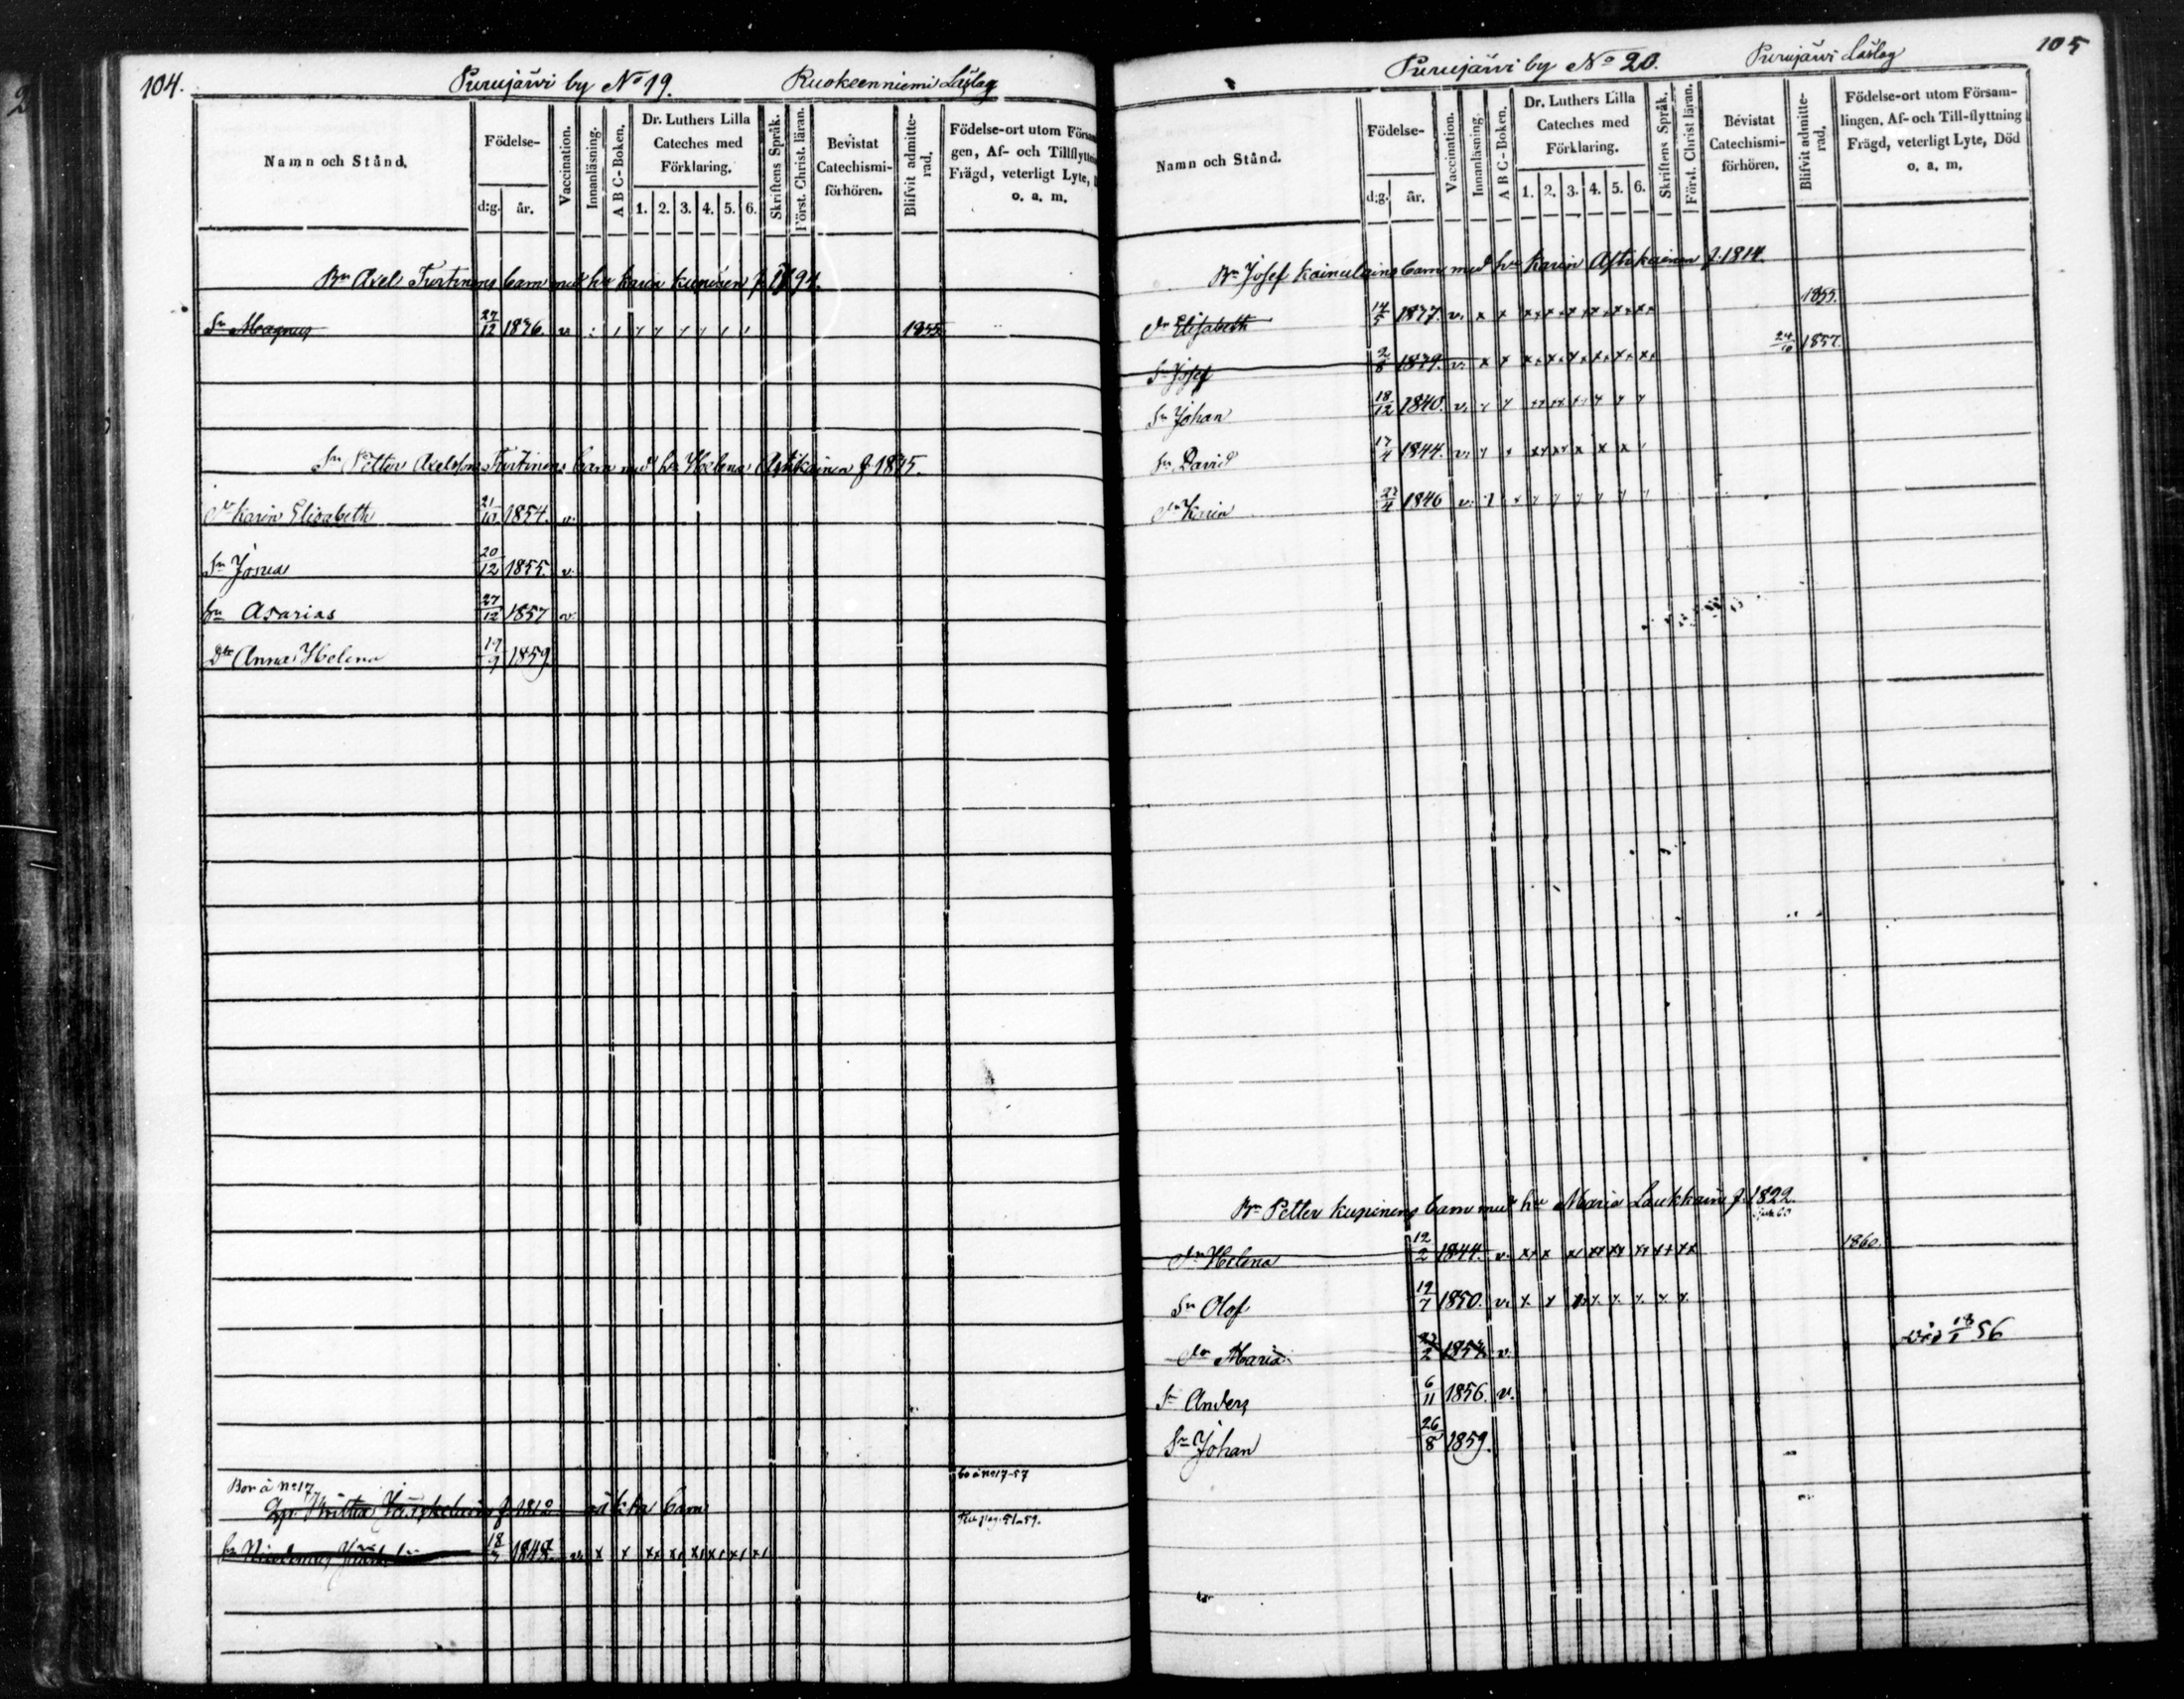 104.
Purujärvi by No 19. Ruokeenniemi Läslag
Namn och Stånd.
Födelse-
d:g. år.
Vaccination.
Innanläsning.
A B C-Boken.
Dr. Luthers Lilla
Cateches med
Förklaring.
1. 2. 3. 4. 5. 6.
Skriftens Språk.
Först. Christ. läran.
Bevistat
Catechismi-
förhören.
Blifvit admitte-
rad.
Födelse-ort utom Försam
gen, Af- och Tillflyttni
Frägd, veterligt Lyte,
o. a. m.
Bn Axel Turtinens barn med hu Karin Kupinen f. 1794.
Sn Magnus 27/12 1836. v. 1855
Sn Petter Axelsson Turtinens barn med hu Helena Astikainen f. 1835.
Dr Karin Elisabeth 21/10 1854. v.
Sn Josua 20/12 1855. v.
Sn Asarias 27/12 1857 v.
Dtr Anna Helena 1859
Bor å No 17
bo å No 17-57
f. 1812 barn
18
105
Purujärvi by No 20. Purujärvi Läslag
Namn och Stånd.
Födelse-
d:g. år.
Vaccination.
Innanläsning.
A B C-Boken.
Dr. Luthers Lilla
Cateches med
Förklaring.
1. 2. 3. 4. 5. 6.
Skriftens Språk.
Först. Christ läran.
Bevistat
Catechismi-
förhören.
Blifvit admitte-
rad.
Födelse-ort utom Försam-
lingen, Af- och Till-flyttning
Frägd, veterligt Lyte, Död
o. a. m.
Bn Josef Kainulains barn med hu Karin Astikainen f. 1814.
Dr Elisabeth 14/5 1837. v. x x 1855.
Sn Josef 2/8 1839. v. x x 24/10 1857.
Sn Johan 18/12 1840. v.
Sn David 17/4 1844. v.
Dr Karin 27/4 1846 v.
Bn Petter Kupinens barn med hu Maria Laukkain f. 1822.
Dr Helena 12/2 1844. v. 1860.
Sn Olof 19/7 1850. v.
Dr Maria 1854 v. död 18/1 56
Sn Anders 6/11 1856. v.
Sn Johan 26/8 1859.